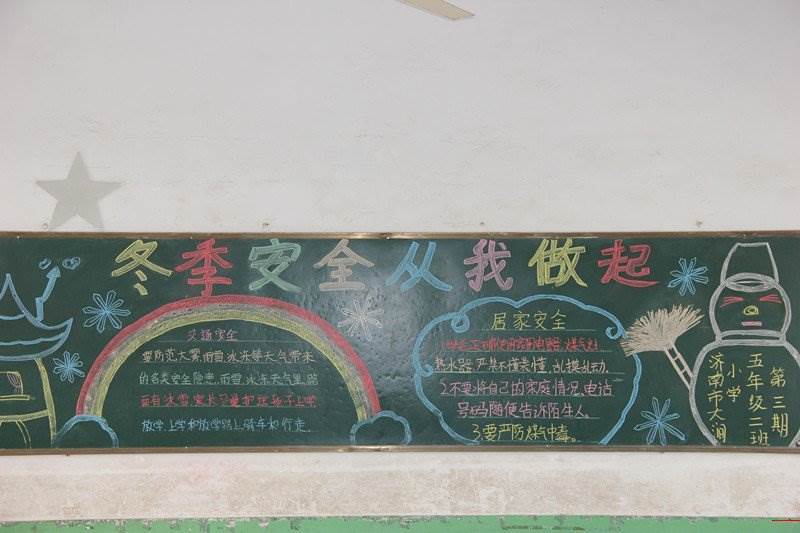 冬季安全从我做起
交通安全
要防范大雾,雨雪,冰冻等天气带来
的各类安全隐患,雨雪,冰冻天气里,路
面有冰雪,家长尽量护送孩子上学
放学,上学和放学路上骑车和行走.
居家安全
使用
热水器,严禁不懂装懂,乱摸乱动.
2不要将自己的家庭情况,电话
号码随便告诉陌生人。
3要严防煤气中毒。
第三期
五年级二班
小学
济南市大涧